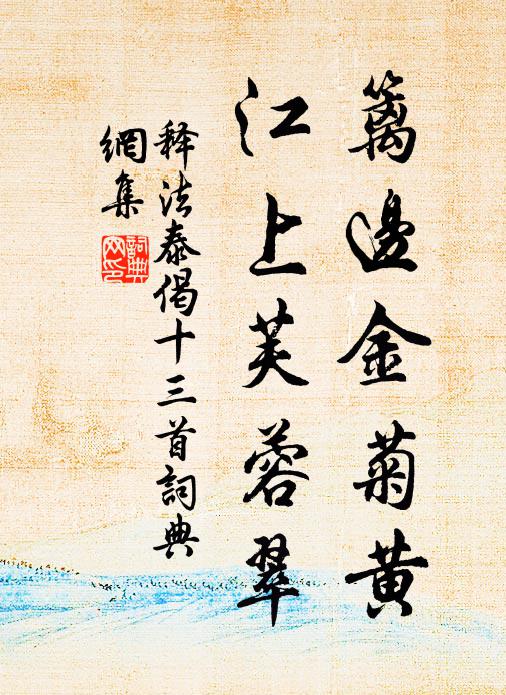 籬邊金菊黃
江上芙蓉翠
释法泰偈十三首詞典
網集
詞典
网印